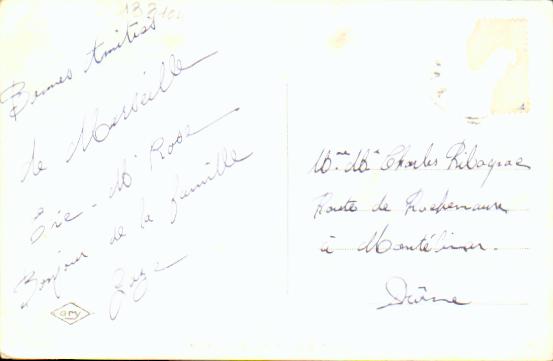 133
Bonnes Amitiés
de Marseille
Eric - M. Rose
Bonjour de la famille
Zoze
GRY
Mme Mr Charles Ribagnac
Route de Rochemaure
à Montélimar.
Drôme